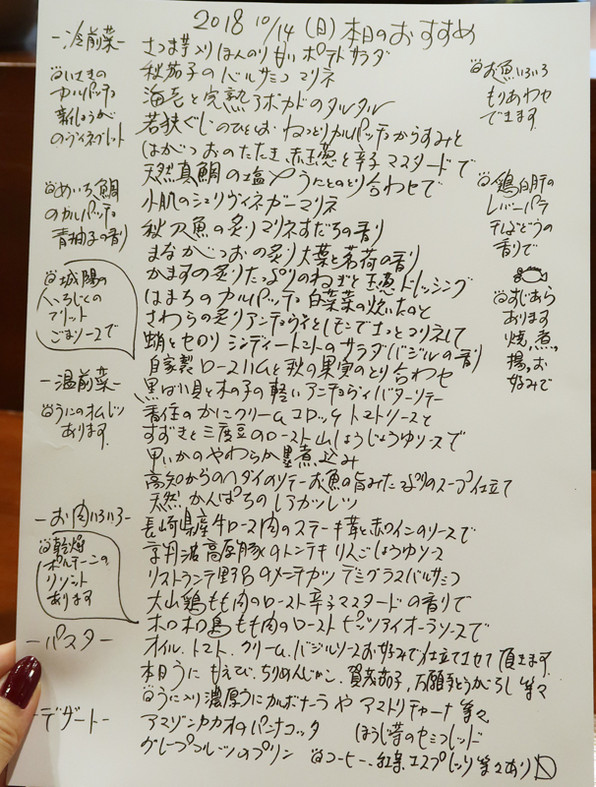 2018 10/14 (日) 本日のおすすめ
-冷前菜-
さつま芋入りほんのり甘いポテトサラダ
秋茄子のバルサミコマリネ
海老と完熟アボカドのタルタル
若狭ぐじのひとしお ねっとりカルパッチョからすみと
はがつおのたたき 赤玉葱と辛子マスタードで
天然真鯛の塩〆 うにとのとり合わせで
小肌のシェリヴィネガーマリネ
秋刀魚の炙りマリネすだちの香り
まながつおの炙り大葉と茗荷の香り
かますの炙りたっぷりのねぎと玉葱ドレッシング
はまちのカルパッチョ 白葉菜の炊いたのと
さわらの炙りアンチョヴィとレモンでさっとマリネして
蛸とセロリ シンディートマトのサラダバジルの香り
自家製ロースハムと秋の果実のとり合わせ
いさきの
カルパッチョ
新しょうが
のヴィネグレット
めいち鯛
のカルパッチョ
青柚子の香り
城陽の
いちじくの
フリット
ごまソースで
お魚いろいろ
もりあわせ
できます
鶏白肝の
レバーパテ
干ぶどうの
香りで
すじあら
あります
焼、煮、
揚、お
好みで
-温前菜-
黒ばい貝と木の子の軽いアンチョヴィバターソテー
香住のかにクリームコロッケ トマトソースと
すずきと三度豆のロースト山しょうじょうゆソースで
甲いかのやわらか墨煮込み
高知からのハダイのソテーお魚の旨みたっぷりのスープ仕立て
天然かんぱちのレアカツレツ
うにのオムレツ
あります
-お肉いろいろ-
長崎県産牛ロース肉のステーキ茸と赤ワインのソースで
京丹波高原豚のトンテキ りんごしょうゆソース
リストランテ野呂のメンチカツ デミグラスバルサミコ
大山鶏もも肉のロースト辛子マスタードの香りで
ホロホロ鳥もも肉のローストピッツアイオーラソースで
乾燥
ポルチーニの
リゾット
あります
-パスタ-
オイル、トマト、クリーム、バジルソースお好みで仕立てさせて頂きます
本日うに もえび、ちりめんじゃこ、賀茂茄子、万願寺とうがらし 等々
うに入り濃厚うにカルボナーラやアマトリチャーナ 等々
-デザート-
アマゾンカカオのパンナコッタ ほうじ茶のセミフレッド
グレープフルーツのプリン コーヒー、紅茶、エスプレッソ等々あり